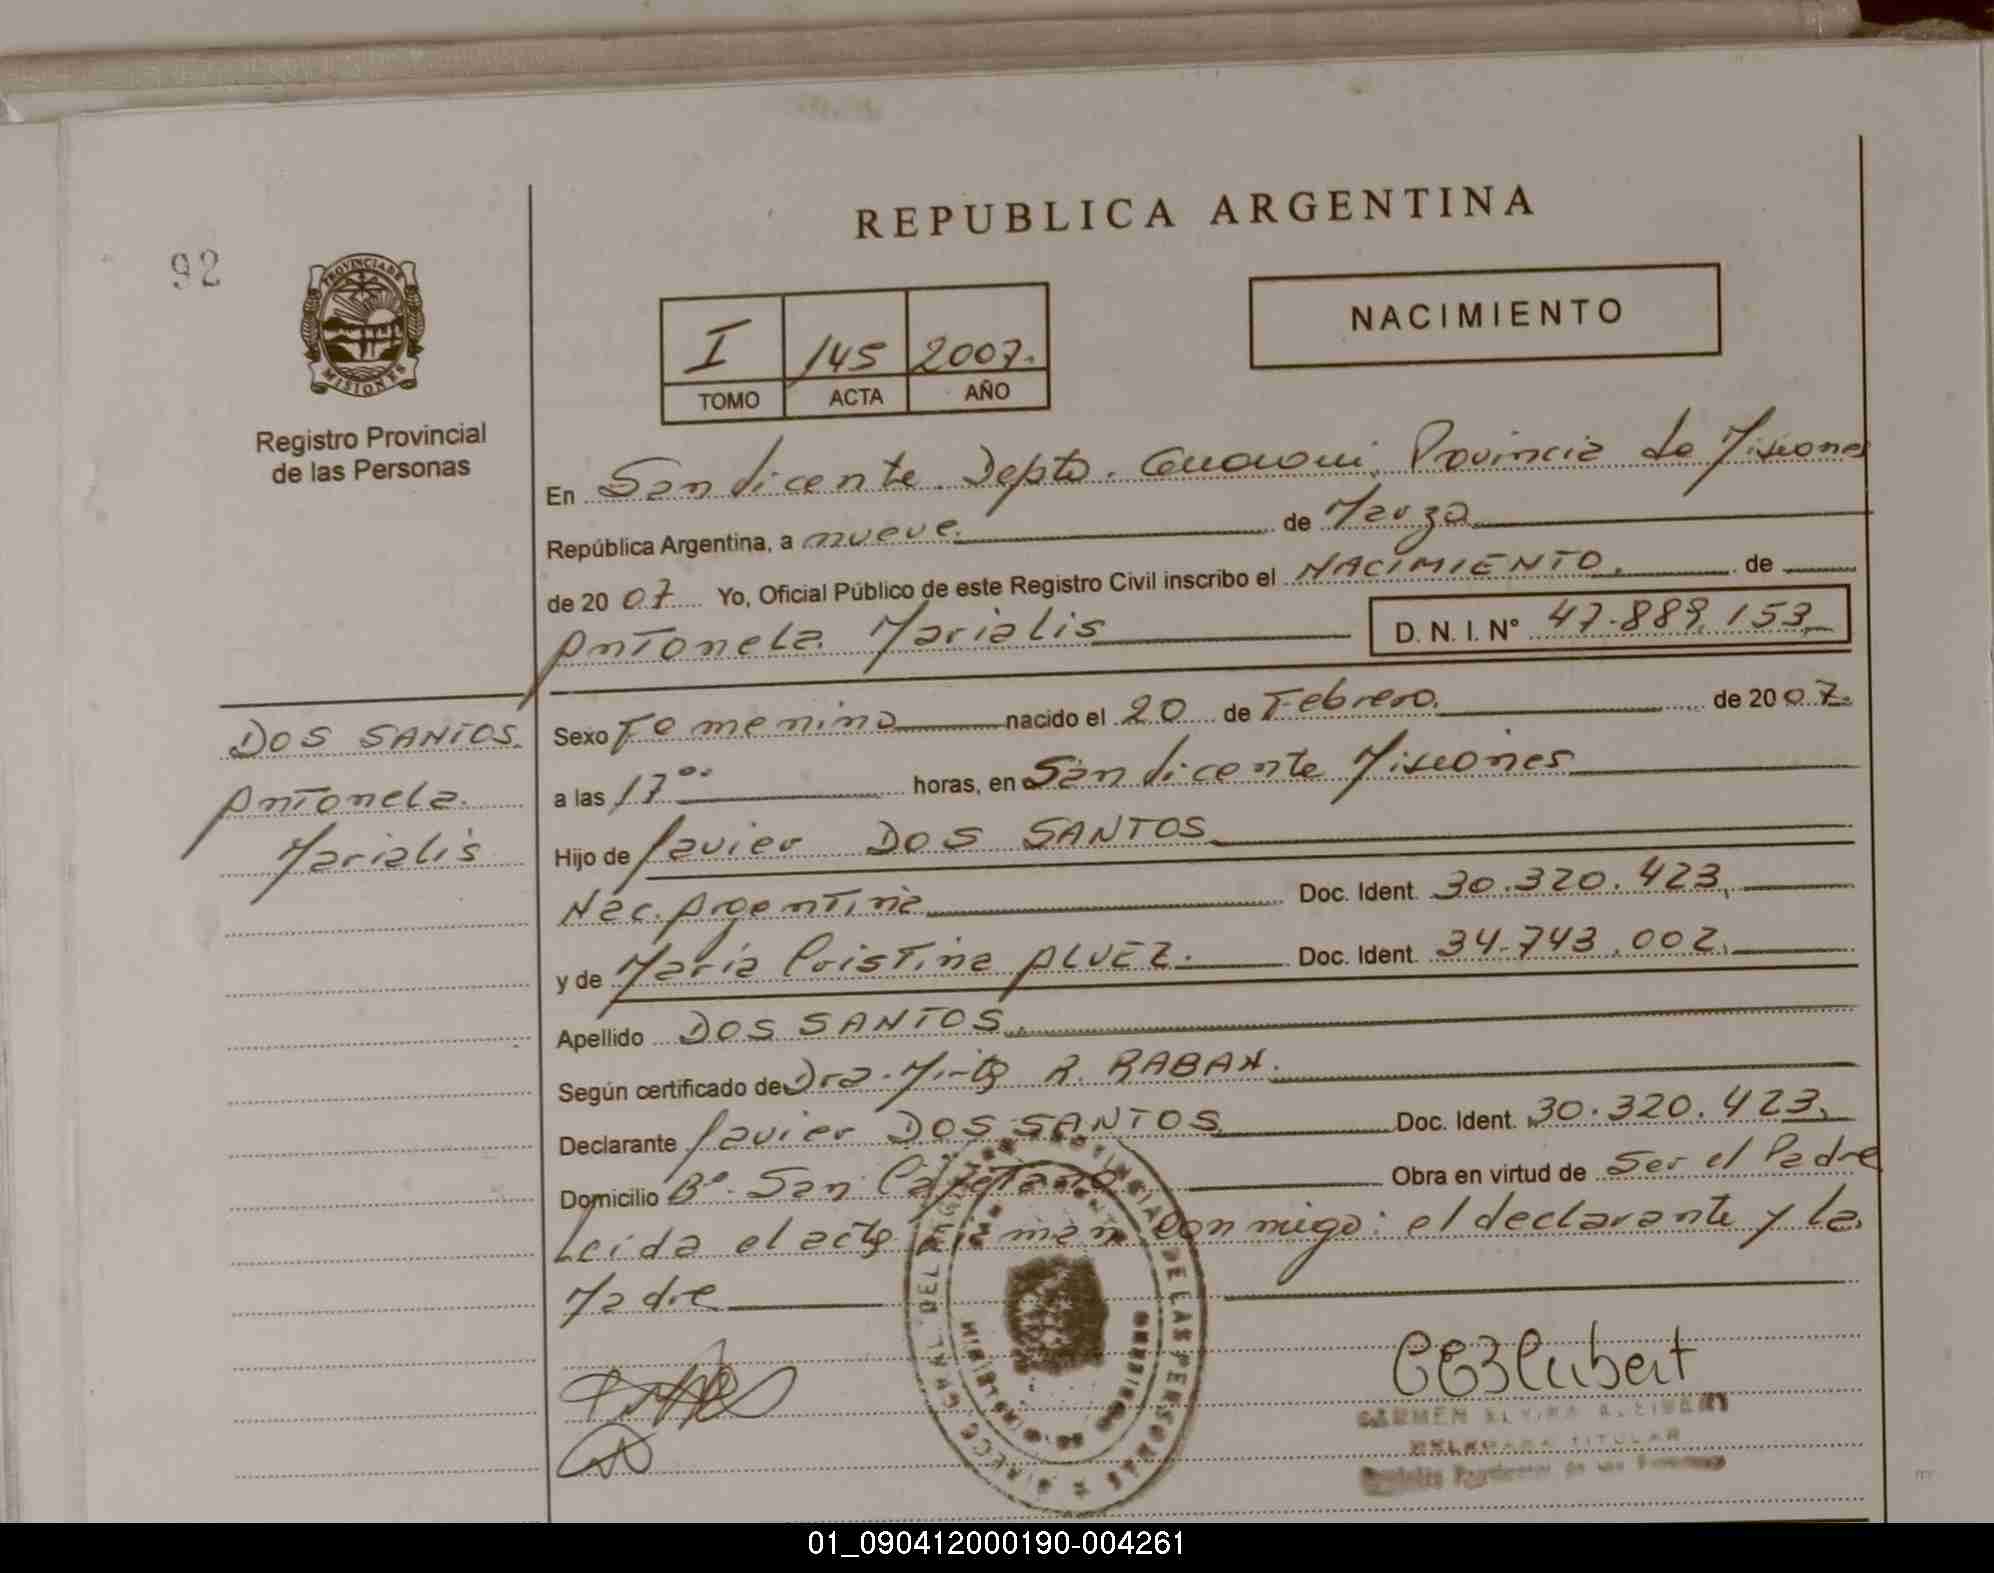 REPUBLICA ARGENTINA
92
PROVINCIA DE
MISIONES
Registro Provincial
de las Personas
I 145 2007.
TOMO ACTA AÑO
NACIMIENTO
En San Vicente. Depto. Guarani. Provincia de Misiones
República Argentina, a nueve. de Marzo
de 2007 Yo, Oficial Público de este Registro Civil inscribo el NACIMIENTO. de
Antonela Marialis D. N. I. N° 47.889.153
DOS SANTOS.
Antonela.
Marialis
Sexo Femenino nacido el 20 de Febrero. de 2007.
a las 17°° horas, en San Vicente Misiones
Hijo de Javier DOS SANTOS
Nac. Argentina Doc. Ident. 30.320.423,
y de Maria Cristina ALVEZ. Doc. Ident. 34.743.002.
Apellido DOS SANTOS.
Según certificado de Dra. Mirta R. RABAN.
Declarante Javier DOS SANTOS Doc. Ident. 30.320.423.
Domicilio B° San Cayetano Obra en virtud de Ser el Padre
Leida el acta firman conmigo: el declarante y la
Madre
DEL REGISTRO PROVINCIAL DE LAS PERSONAS
CARMEN ELVIRA
DELEGADA TITULAR
01_090412000190-004261